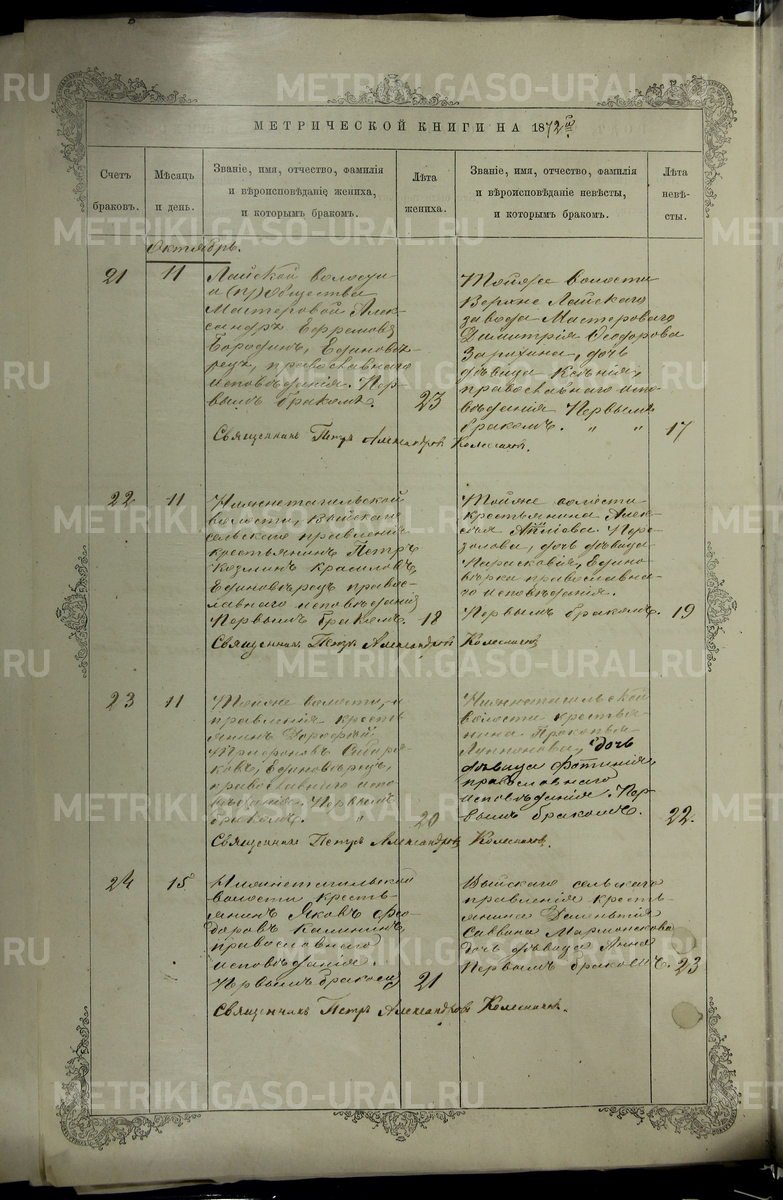 МЕТРИЧЕСКОЙ КНИГИ НА 1872й
Счетъ браковъ.
Мѣсяцъ и день.
Званіе, имя, отчество, фамилія
и вѣроисповѣданіе жениха,
и которымъ бракомъ.
Лѣта жениха.
Званіе, имя, отчество, фамилія
и вѣроисповѣданіе невѣсты,
и которымъ бракомъ.
Лѣта невѣсты.
Октябрь.
21
11
Лайской волости
и общества
Мастеровой Алек-
сандръ Ефремовъ
Бородинъ, Единовѣ-
рецъ, православнаго
исповѣданія. Пер-
вымъ бракомъ.
23
Тойже волости
Верхне Лайскаго
завода Мастероваго
Димитрія Ѳеодорова
дочь
дѣвица Ксенія,
православнаго испо-
вѣданія Первымъ
бракомъ. " "
17
Священникъ Петръ Александровъ Колесниковъ.
22
11
Нижнетагильской
волости, Выйскаго
сельскаго правленія
крестьянинъ Петръ
Козминъ
Единовѣрецъ право-
славнаго исповѣданія
Первымъ бракомъ.
18
Тойже волости
крестьянина Алек-
сѣя
дочь дѣвица
Парасковія, Едино-
вѣрка православна-
го исповѣданія.
Первымъ бракомъ.
19
Священникъ Петръ Александровъ Колесниковъ
23
11
Тойже волости, и
правленія кресть-
янинъ Дорофей
Трифоновъ
Единовѣрецъ,
православнаго испо-
вѣданія. Первымъ
бракомъ. "
20
Нижнетагильской
волости крестья-
нина Прокопья
дочь
дѣвица Фотинія,
православнаго
исповѣданія. Пер-
вымъ бракомъ.
22.
Священникъ Петръ Александровъ Колесниковъ.
24
15
Нижнетагильской
волости кресть-
янинъ Яковъ Фео-
доровъ Калининъ,
православнаго
исповѣданія.
Первымъ бракомъ
21
Выйскаго сельскаго
правленія кресть-
янина
Саввина
дочь дѣвица Анна
Первымъ бракомъ.
23
Священникъ Петръ Александровъ Колесниковъ.
METRIKI.GASO-URAL.RU